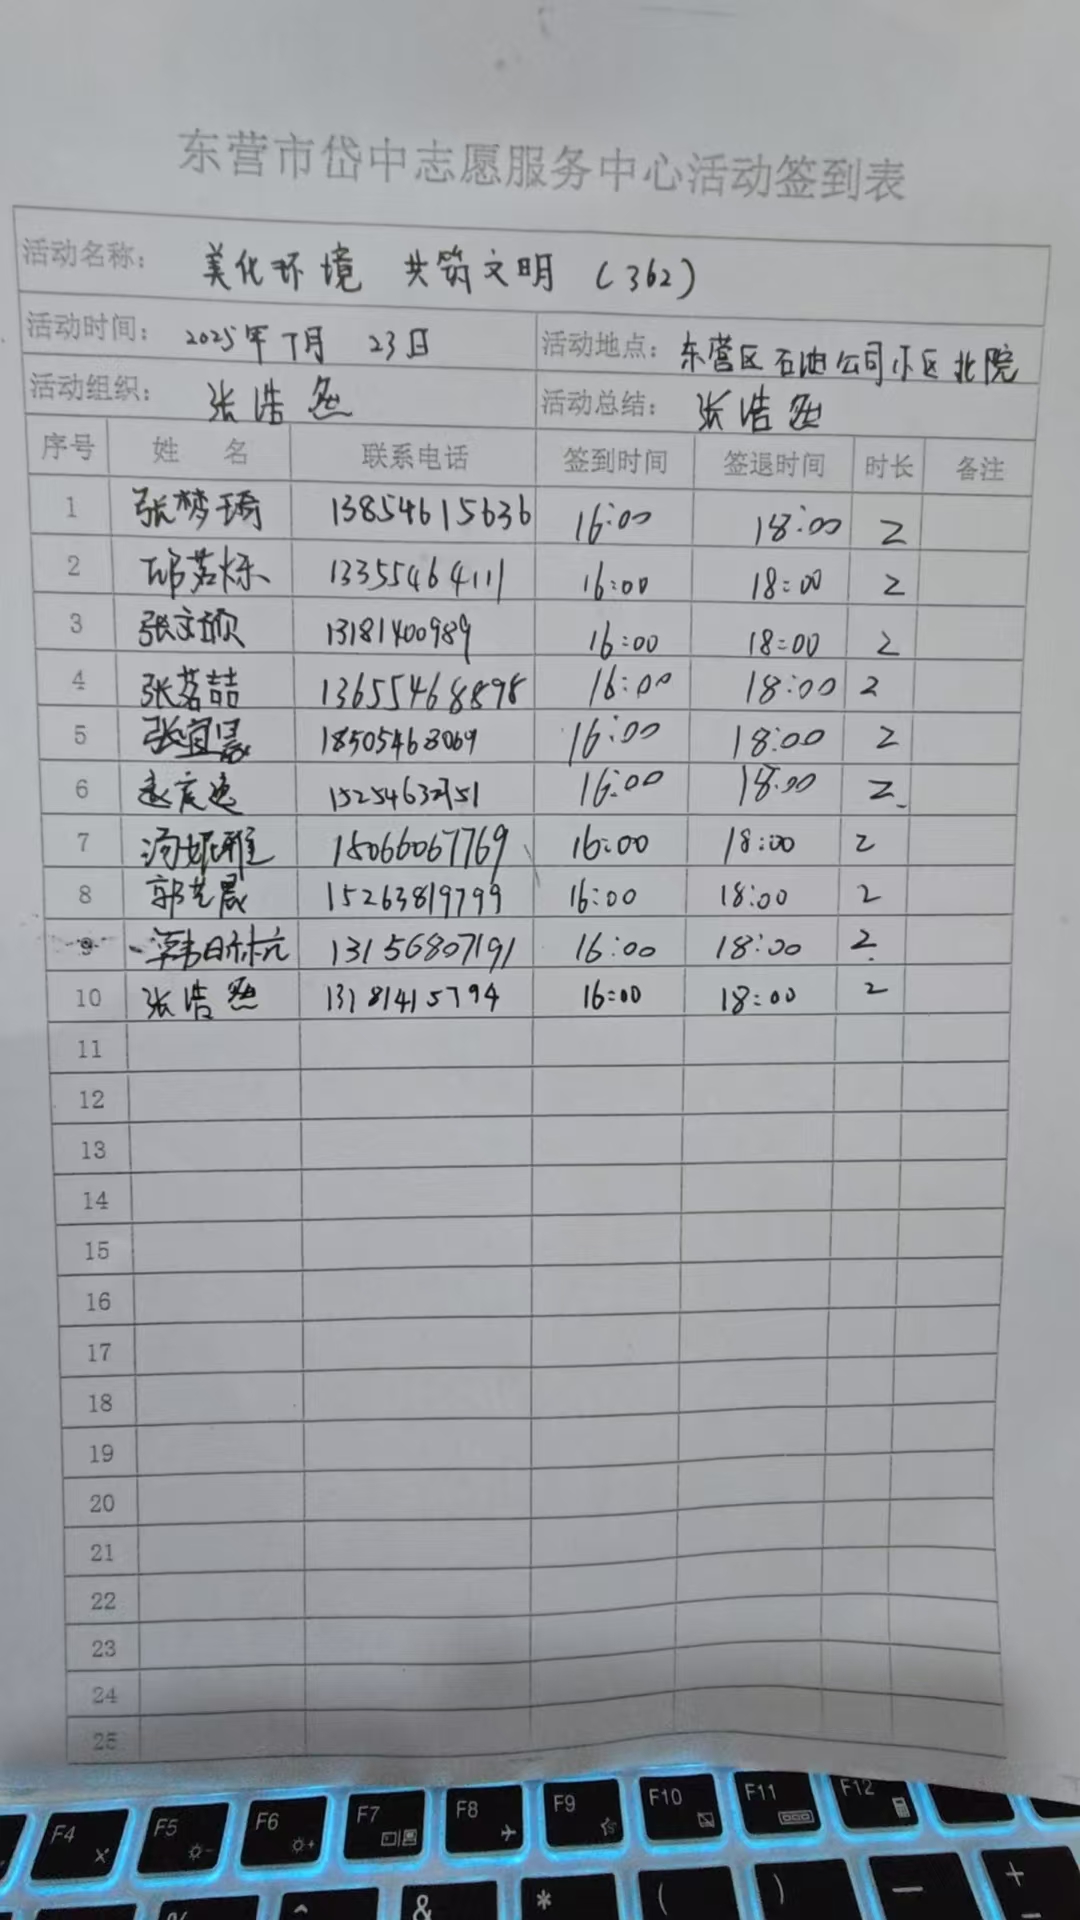 东营市岱中志愿服务中心活动签到表
活动名称： 美化环境 共筑文明（362）
活动时间： 2025年7月 23日 活动地点： 东营区石油公司小区北院
活动组织： 张浩然 活动总结： 张浩然
序号 姓 名 联系电话 签到时间 签退时间 时长 备注
1 张梦琦 13854615636 16:00 18:00 2
2 邱茗烁 13355464111 16:00 18:00 2
3 张文颀 13181400989 16:00 18:00 2
4 张茗喆 13655468898 16:00 18:00 2
5 张宜晨 18505463069 16:00 18:00 2
6 16:00 18:00 2
7 汤妮雅 15066067769 16:00 18:00 2
8 郭艺晨 15263819799 16:00 18:00 2
9 韩日林 13156807191 16:00 18:00 2
10 张浩然 13181415794 16:00 18:00 2
11
12
13
14
15
16
17
18
19
20
21
22
23
24
25
F4 F5 F6 F7 F8 F9 F10 F11 F12
% ^ & * ( ) — +